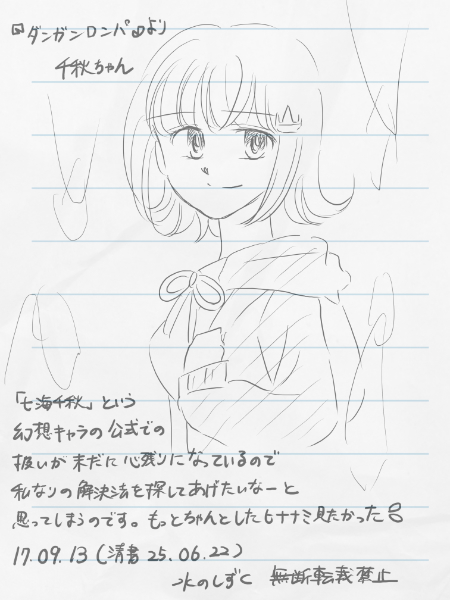 『ダンガンロンパ』より
千秋ちゃん
「七海千秋」という
幻想キャラの公式での
扱いが未だに心残りになっているので
私なりの解決法を探してあげたいなーと
思ってしまうのです。もっとちゃんとしたヒナナミ見たかった
17.09.13(清書25.06.22)
水のしずく 無断転載禁止